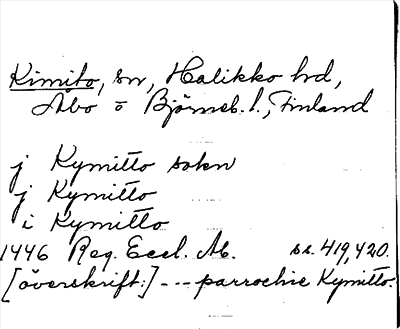 Kimito, sn, Halikko hd,
Åbo o Björneb. l., Finland
j Kymitto sokn
j Kymitto
i Kymitto
1446 Reg. Eccl. Ab. ss. 419, 420.
[överskrift:] --- parrochie Kymitto.